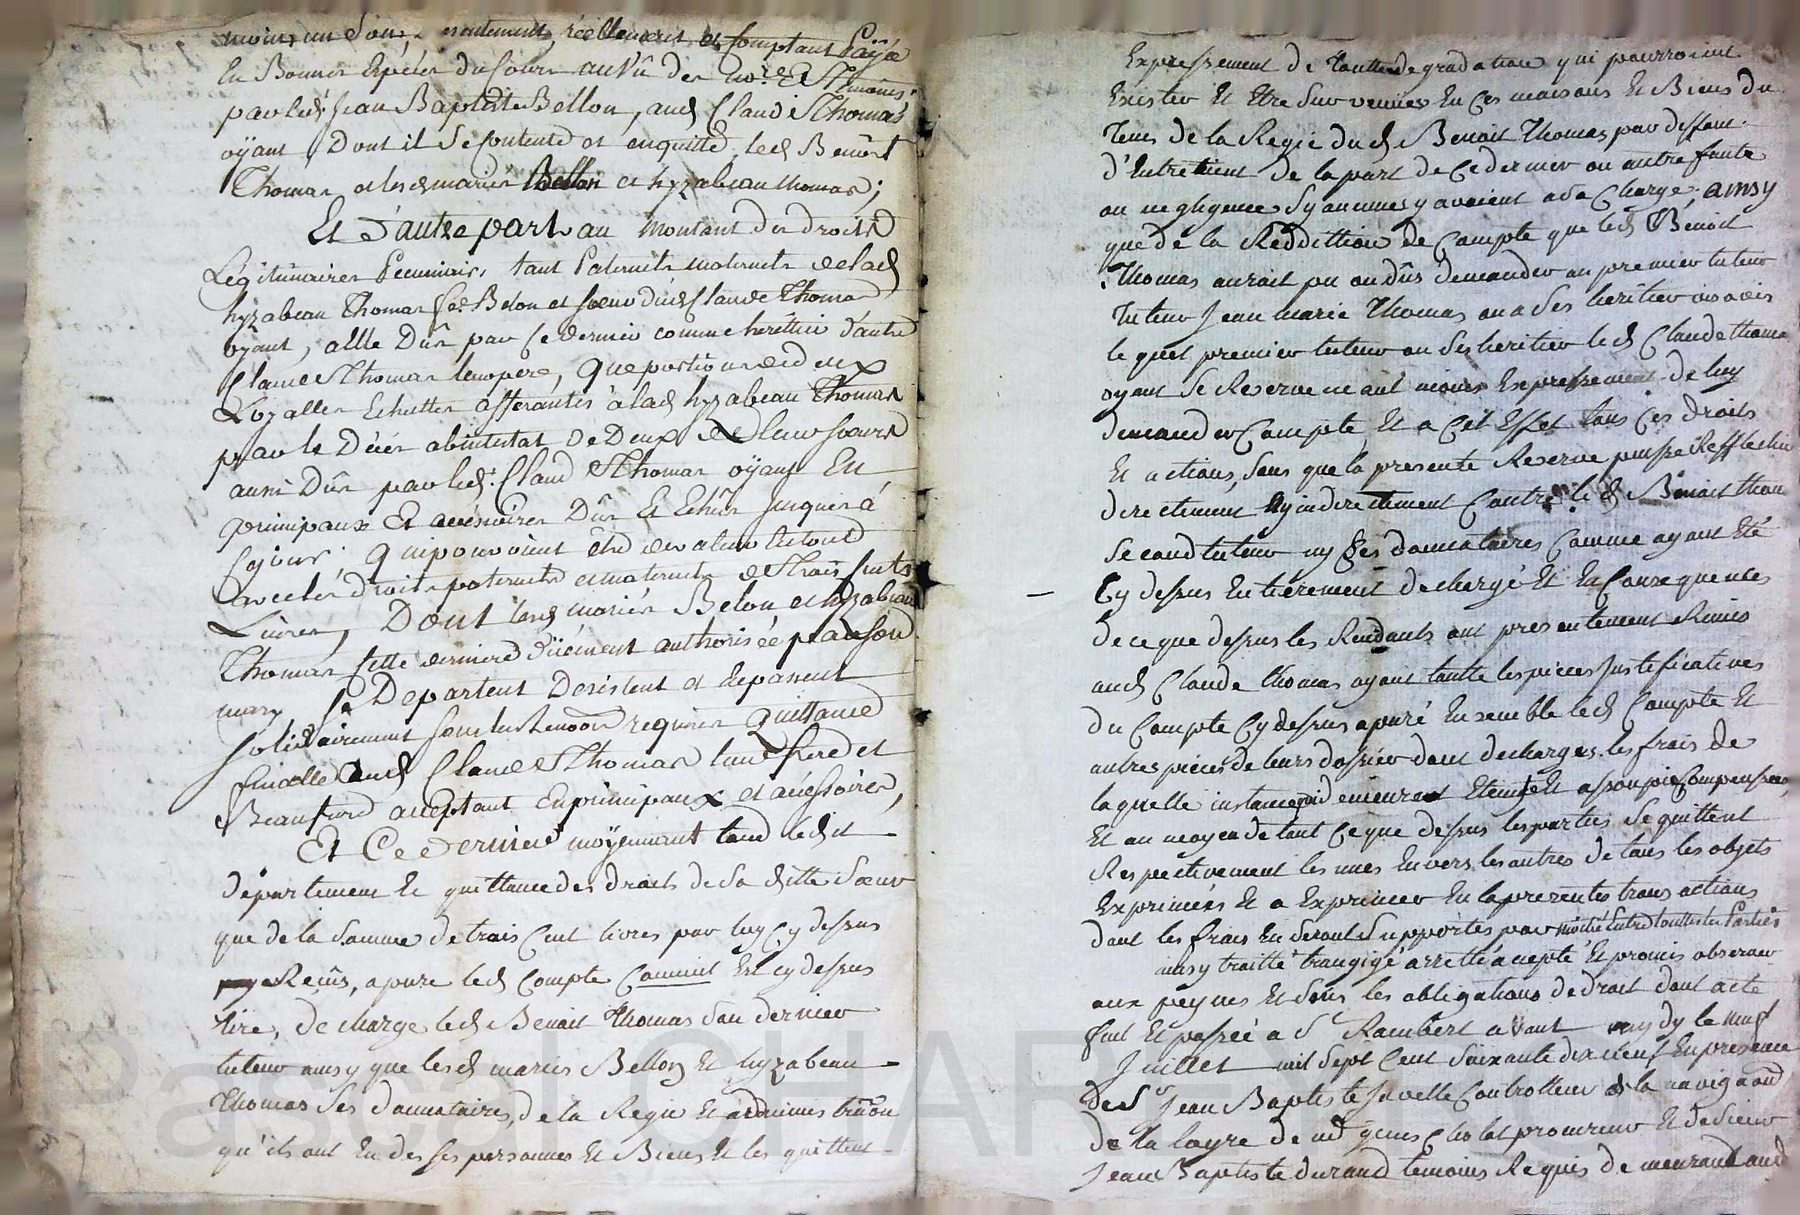 moins un sou, reellement et comptant Payé
En Bonnes Espèces du Cours au Vû des no.res & Themoins
par led Jean Baptiste Bellon, aud Claude Thomas
oÿant Dont il Se Contente et enquitte led Benoit
Thomas et les d mariés Bellon et hyzabeau thomas;
Et d'autre part au Montant des droits
Légitimaires Pecuniaires tant Paternels maternels de lad
hyzabeau Thomas fe. Belon et soeur dud Claude Thomas
oyant, a elle Dûs par Ce dernier comme herittier d'autre
Claude Thomas leur pere, que portions de deux
Echuttes afferantes à lad hyzabeau Thomas
par le Décès abintestat De Deux de leurs soeurs
aussi Dûs par led. Claude Thomas oÿant En
principaux Et accessoires Dûs Et Echûs jusques à
Cejour; qui pouvoient être de valeur le tout
avec les droits paternels et maternels de Trois Cents
Livres, Dont lesd mariés Belon et hyzabeau
Thomas Cette derniere düement authorisée par son
mary Se Departent Desistent et en passent
solidairement sous les Renõons requises Quittance
finalle aud Claude Thomas leur frere et
Beaufrere acceptant En principaux et accéssoires,
Et Ce dernier moÿennant tant led it
département Et quittance des droits de Sa ditte Soeur
que de la Somme de trois Cent livres par luy Cy dessus
Reçus, apure led Compte Comme Est cy dessus
dire, decharge led Benoit Thomas Son dernier
tuteur ainsy que lesd mariés Bellon Et hyzabeau
Thomas Ses donnataires, de la Regie Et administrãon
qu'ils ont Eu de Ses personnes Et Biens Et les quittent
Expressement de Toutte degradation qui pourroient
Exister Et Etre Survenues En Ces maisons Et Biens du
Tems de la Regie dud Benoit Thomas par deffaut
d'Entretient de la part de Ce dernier ou autre faute
ou negligence Sy aucunes y avoient a Sa Charge; ainsy
que de la Reddittion de Compte que led Benoit
Thomas aurait pu ou dûs demander au premier tuteur
Tuteur Jean Marie Thomas ou a Ses heritiers
lequel premier tuteur ou Ses heritiers led Claude thomas
oyant Se Reserve neant moins Expressement de luy
demander Compte, Et a Cet Effet tous Ces droits
Et actions, Sans que la presente Reserve puisse Refflechir
directement ny indirectement Contre led Benoit thomas
Second tuteur ny Ses donnataires Comme ayant Eté
Cy dessus Entierement decharge Et En Consequences
de ce que dessus les Rendants ont presentement Remis
aud Claude thomas oyant toutte les pieces Justificatives
du Compte Cy dessus apuré Ensemble led Compte Et
autres pieces de leurs dossier dont decharges. les frais de
laquelle instance demeurent Eteint Et assoupie Compensés,
Et au moyen de tout Ce que dessus les parties Se quittent
Respectivement les unes Envers les autres de tous les objets
Exprimés Et a Exprimer En la presentes transactions
dont les frais En Seront Supportés par moitié Entre touttes les Parties
ainsy traitté trangigé arretté accepté Et promis observer
aux peynes Et Sous les obligations de droit dont acte
fait Et passée a St Rambert avant midy le neuf
Juillet mil Sept Cent Soixante dix neuf En presence
de Sr Jean Baptiste Javelle Controlleur de la navigãon
de la loyre de Me Cholat, procureur Et de Sieur
Jean Baptiste durand temoins Requis demeurant aud
Pascal CHAR